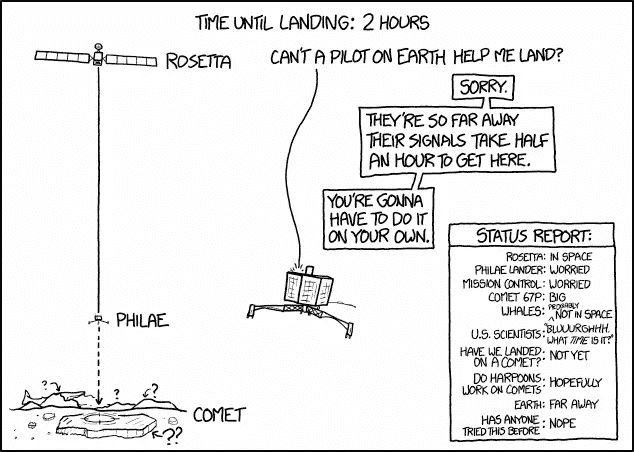 TIME UNTIL LANDING: 2 HOURS
ROSETTA
CAN'T A PILOT ON EARTH HELP ME LAND?
SORRY.
THEY'RE SO FAR AWAY
THEIR SIGNALS TAKE HALF
AN HOUR TO GET HERE.
YOU'RE GONNA
HAVE TO DO IT
ON YOUR OWN.
PHILAE
? ? ?
COMET
??
STATUS REPORT:
ROSETTA: IN SPACE
PHILAE LANDER: WORRIED
MISSION CONTROL: WORRIED
COMET 67P: BIG
WHALES: PROBABLY NOT IN SPACE
U.S. SCIENTISTS: "BLUUURGHHH.
WHAT TIME IS IT?"
HAVE WE LANDED
ON A COMET?: NOT YET
DO HARPOONS
WORK ON COMETS: HOPEFULLY
EARTH: FAR AWAY
HAS ANYONE
TRIED THIS BEFORE: NOPE